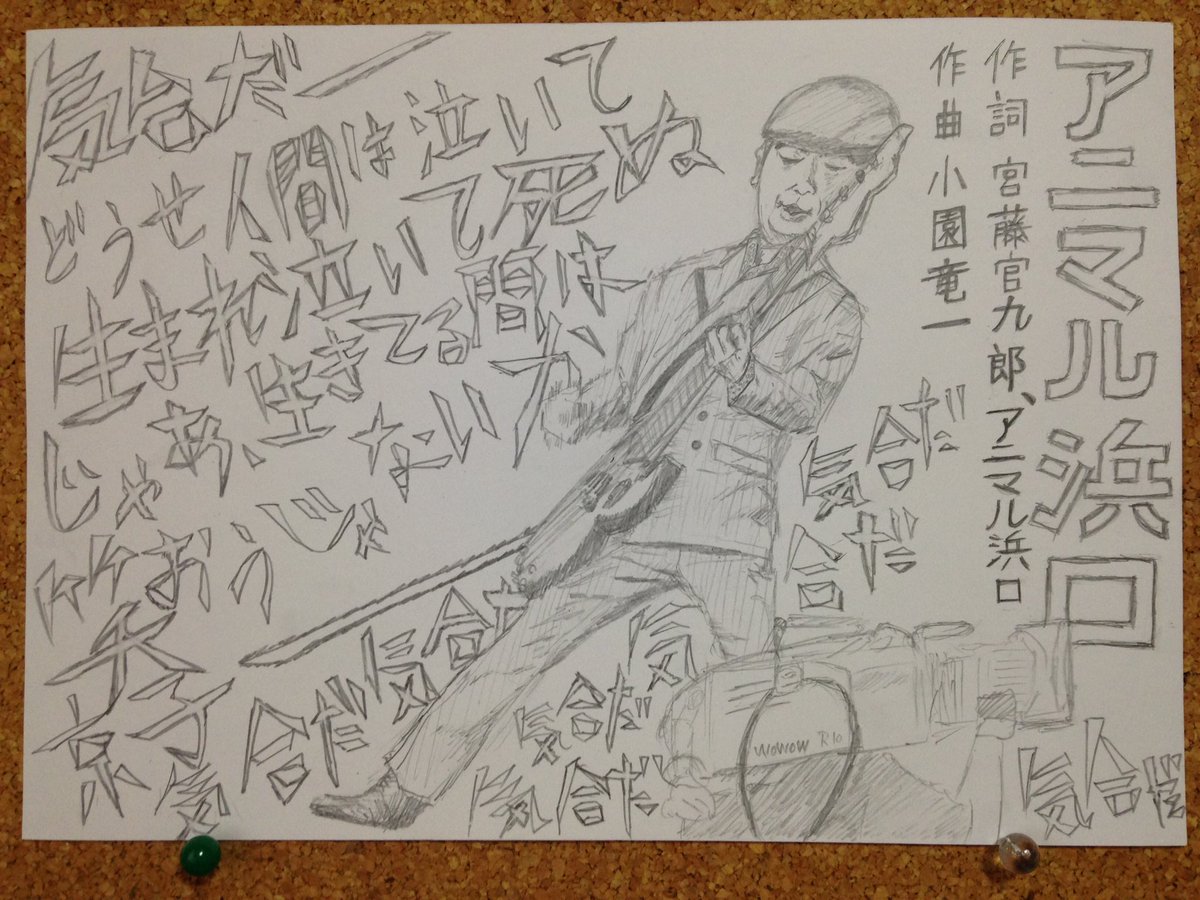 アニマル浜口
作詞 宮藤官九郎、アニマル浜口
作曲 小園竜一
気合だー
どうせ人間は泣いて
生まれ、泣いて死ぬ
じゃあ、生きてる間は
笑おうじゃないか
京子
気合だ
気合だ
気合だ
気合だ
気合だ
気合だ
気合だ
WOWOW R10